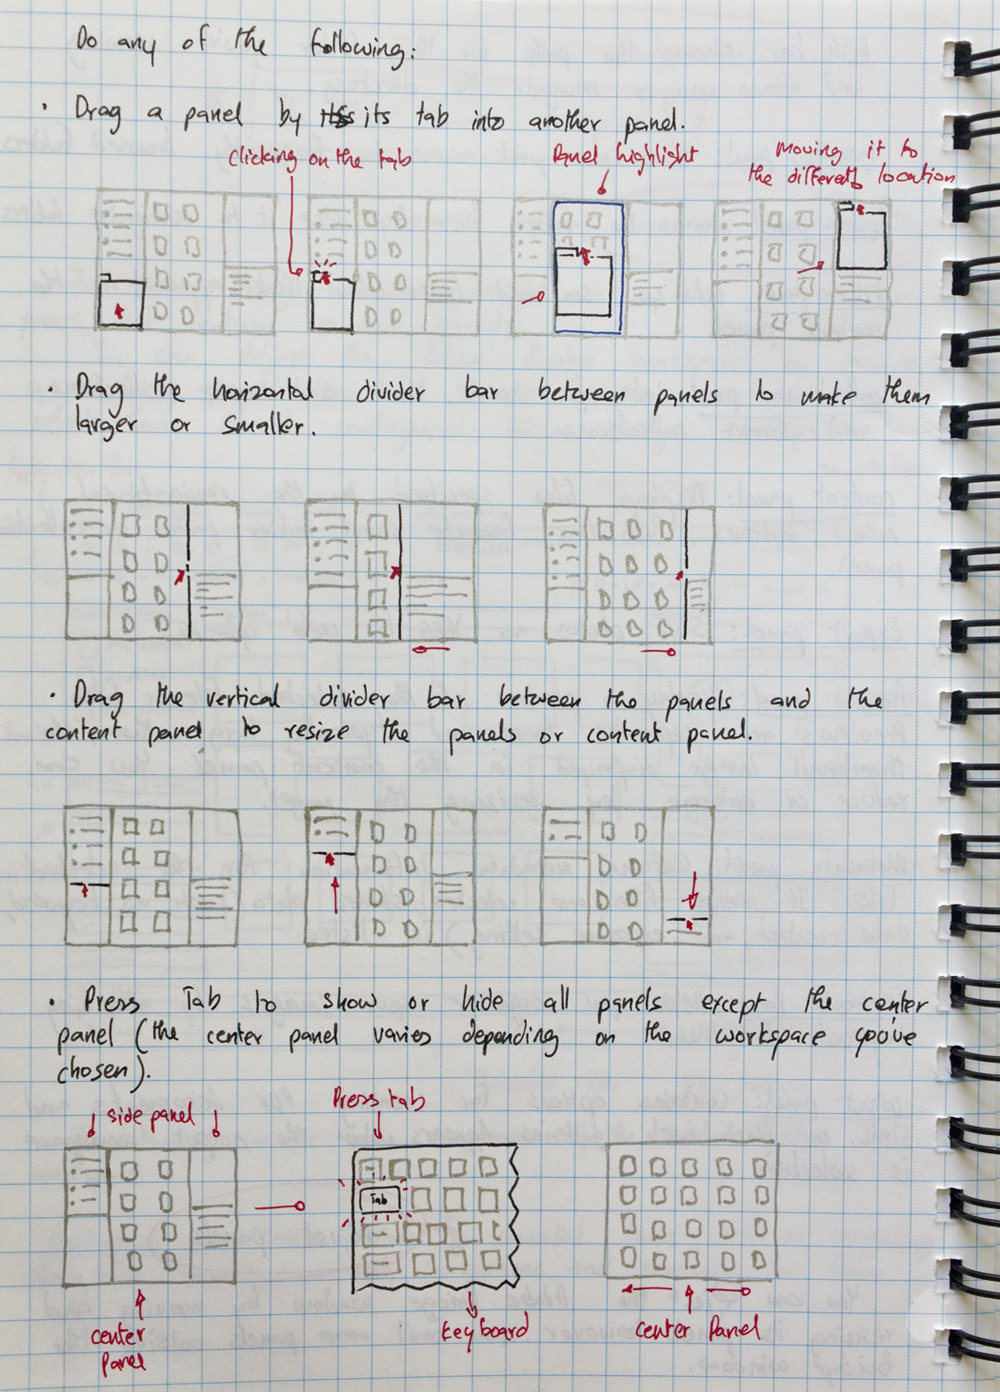 Do any of the following:
• Drag a panel by its its tab into another panel.
clicking on the tab
Panel highlight
moving it to
the different location
• Drag the horizontal divider bar between panels to make them
larger or smaller.
• Drag the vertical divider bar between the panels and the
content panel to resize the panels or content panel.
• Press Tab to show or hide all panels except the center
panel (the center panel varies depending on the workspace you've
chosen).
side panel
Press tab
Tab
center
panel
keyboard
center Panel